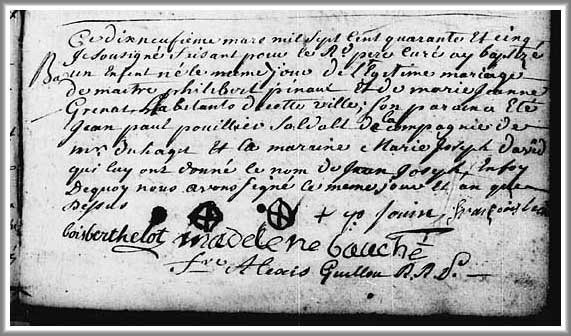 Ce dix neufieme mars mil sept cent quarante et cinq
Je sousigné faisant pour le Rd pere curé ay baptizé
Ba un Enfant né le meme jour de legitime mariage
de maitre philibert pinaut Et de marie Jeanne
Grenat habitants de cette ville, son parain a Eté
Jean paul pouillier Soldat de la compagnie de
mr duhaget Et la marine Marie Joseph david
qui luy ont donné le nom de Jean Joseph, En foy
dequoy nous avons signé le meme jour et an que
dessus
boisberthelot madelene bauché
frre Alexis Guillou R.R.D.